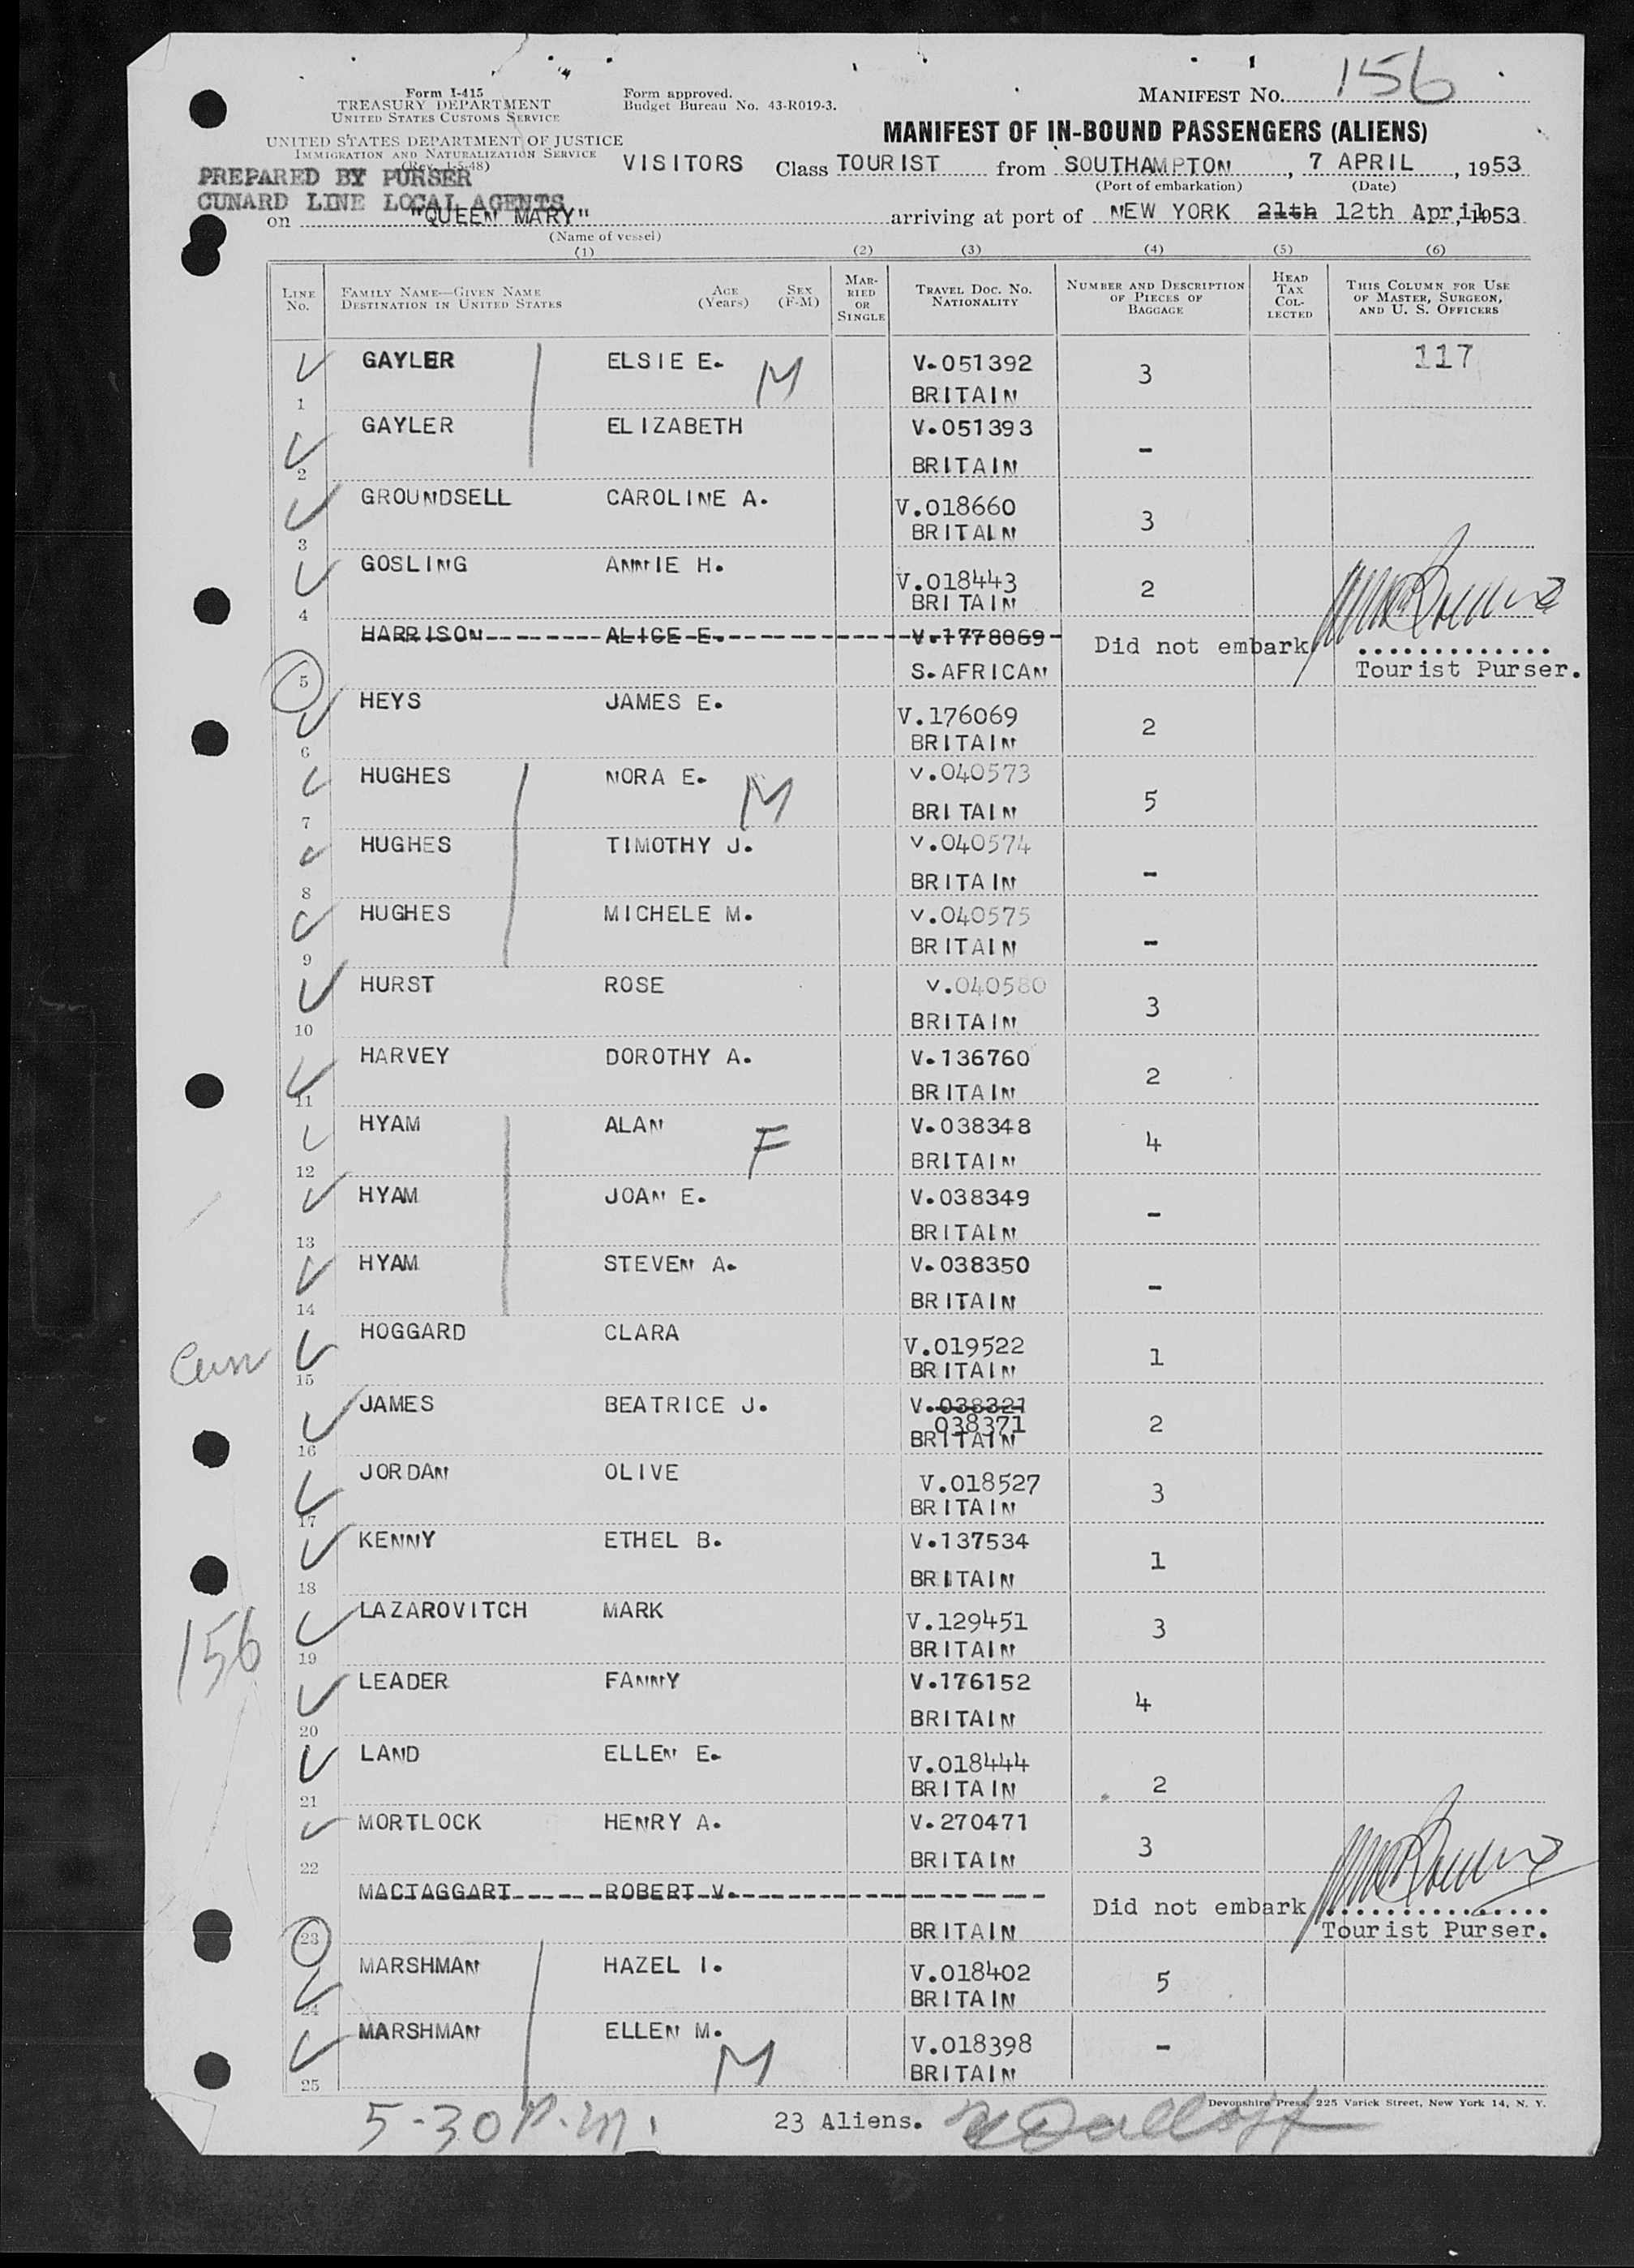 156
Form I-415
TREASURY DEPARTMENT
UNITED STATES CUSTOMS SERVICE
Form approved.
Budget Bureau No. 43-R019-3.
MANIFEST NO.
UNITED STATES DEPARTMENT OF JUSTICE
IMMIGRATION AND NATURALIZATION SERVICE
(Rev. 1-5-48)
MANIFEST OF IN-BOUND PASSENGERS (ALIENS)
PREPARED BY PURSER
CUNARD LINE LOCAL AGENTS
VISITORS Class TOURIST from SOUTHAMPTON, 7 APRIL, 1953
(Port of embarkation) (Date)
on "QUEEN MARY" arriving at port of NEW YORK 21th 12th April, 1953
(Name of vessel)
(1) (2) (3) (4) (5) (6)
LINE NO. FAMILY NAME—GIVEN NAME DESTINATION IN UNITED STATES AGE (YEARS) SEX (F-M) MARRIED OR SINGLE TRAVEL DOC. NO. NATIONALITY NUMBER AND DESCRIPTION OF PIECES OF BAGGAGE HEAD TAX COLLECTED THIS COLUMN FOR USE OF MASTER, SURGEON, AND U. S. OFFICERS
1 GAYLER ELSIE E. M V.051392 BRITAIN 3 117
2 GAYLER ELIZABETH V.051393 BRITAIN -
3 GROUNDSELL CAROLINE A. V.018660 BRITAIN 3
4 GOSLING ANNIE H. V.018443 BRITAIN 2
5 HARRISON ALICE E. V.1778069 S.AFRICAN Did not embark Tourist Purser.
6 HEYS JAMES E. V.176069 BRITAIN 2
7 HUGHES NORA E. M V.040573 BRITAIN 5
8 HUGHES TIMOTHY J. V.040574 BRITAIN -
9 HUGHES MICHELE M. V.040575 BRITAIN -
10 HURST ROSE V.040580 BRITAIN 3
11 HARVEY DOROTHY A. V.136760 BRITAIN 2
12 HYAM ALAN F V.038348 BRITAIN 4
13 HYAM JOAN E. V.038349 BRITAIN -
14 HYAM STEVEN A. V.038350 BRITAIN -
15 HOGGARD CLARA V.019522 BRITAIN 1
16 JAMES BEATRICE J. V.038321 038371 BRITAIN 2
17 JORDAN OLIVE V.018527 BRITAIN 3
18 KENNY ETHEL B. V.137534 BRITAIN 1
19 LAZAROVITCH MARK V.129451 BRITAIN 3
156
20 LEADER FANNY V.176152 BRITAIN 4
21 LAND ELLEN E. V.018444 BRITAIN 2
22 MORTLOCK HENRY A. V.270471 BRITAIN 3
23 MACTAGGART ROBERT V. BRITAIN Did not embark Tourist Purser.
24 MARSHMAN HAZEL I. V.018402 BRITAIN 5
25 MARSHMAN ELLEN M. M V.018398 BRITAIN -
Devonshire Press, 225 Varick Street, New York 14, N. Y.
5-30 P.M. 23 Aliens.